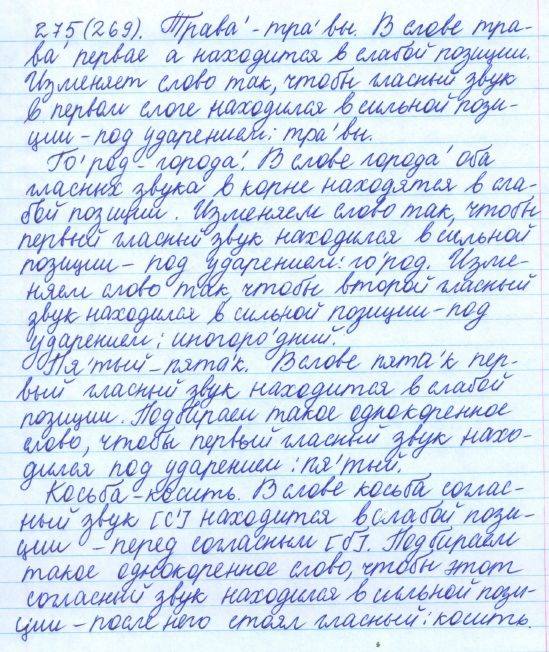 275(269). Трава́ - тра́вы. В слове тра-
ва́ первае а находится в слабой позиции.
Изменяет слово так, чтобы гласный звук
в первом слоге находился в сильной пози-
ции - под ударением: тра́вы.
Го́род - города́. В слове города́ оба
гласных звука в корне находятся в сла-
бой позиции. Изменяем слово так, чтобы
первый гласный звук находился в сильной
позиции - под ударением: го́род. Изме-
няем слово так, чтобы второй гласный
звук находился в сильной позиции - под
ударением: иногоро́дний.
Пя́тый - пята́к. В слове пята́к пер-
вый гласный звук находится в слабой
позиции. Подбираем такое однокоренное
слово, чтобы первый гласный звук нахо-
дился под ударением: пя́тый.
Косьба - косить. В слове косьба соглас-
ный звук [с'] находится в слабой пози-
ции - перед согласным [б]. Подбираем
такое однокоренное слово, чтобы этот
согласный звук находился в сильной пози-
ции - после него стоял гласный: косить.